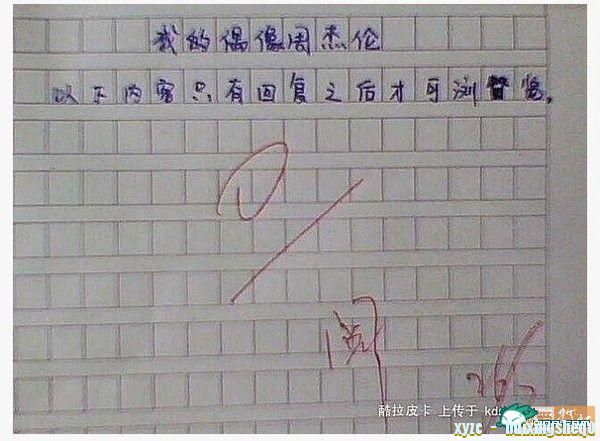 我的偶像周杰伦
以下内容只有回复之后才可浏览。
阅
酷拉皮卡 上传于 kds